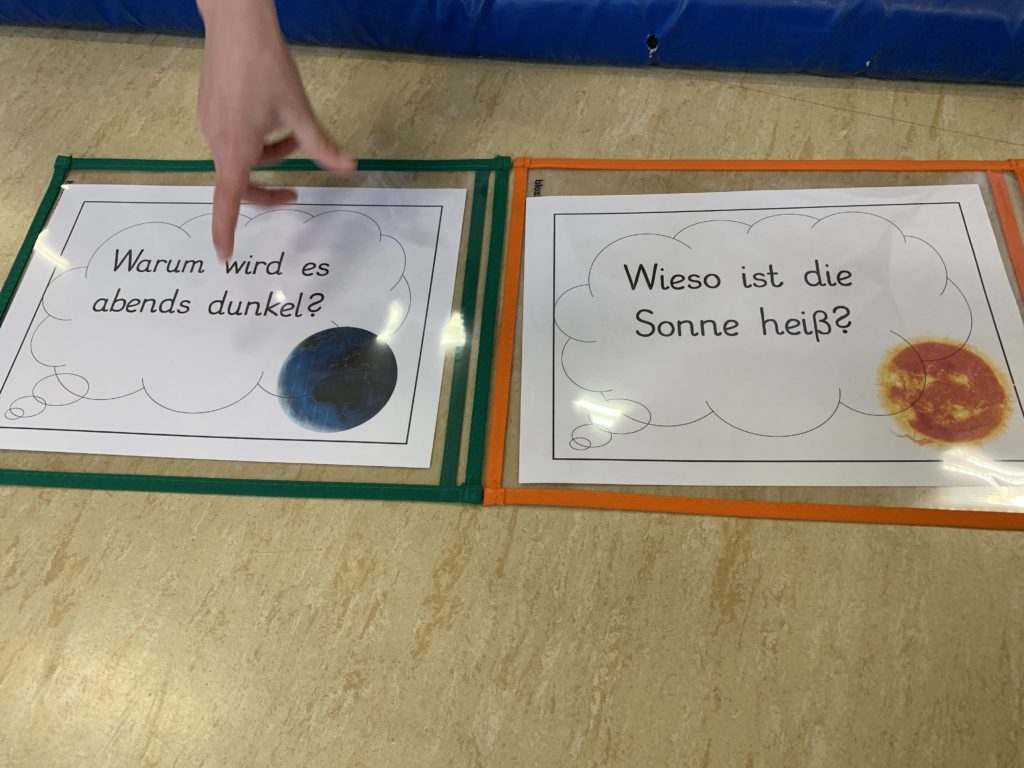 Warum wird es
abends dunkel?
Wieso ist die
Sonne heiß?